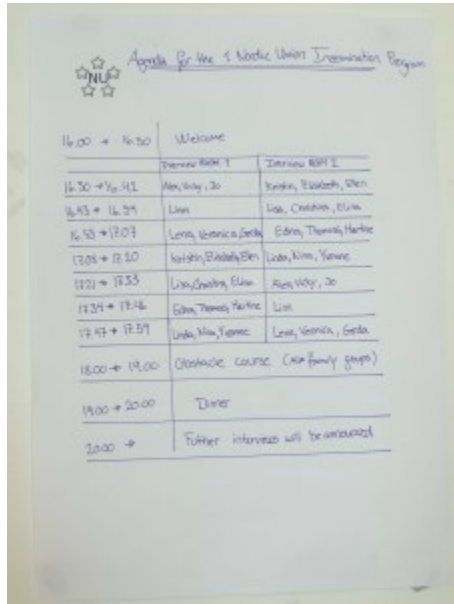 Agenda for the 1 Nordic Union Program
NU
16.00 → 16.30 Welcome
Interview ROOM 1 Interview ROOM 2
16.30 → 16.41 Alex, Vicky, Jo Kristin, Elizabeth, Ellen
16.43 → 16.54 Linn Lisa, Christina, Elisa
16.55 → 17.07 Lena, Veronica, Gerda Edna, Thomas, Martine
17.08 → 17.20 Kristin, Elizabeth, Ellen Linda, Nina, Yvonne
17.21 → 17.33 Lisa, Christina, Elisa Alex, Vicky, Jo
17.34 → 17.46 Edna, Thomas, Martine Linn
17.47 → 17.59 Linda, Nina, Yvonne Lena, Veronica, Gerda
18.00 → 19.00 Obstacle course (family groups)
19.00 → 20.00 Dinner
20.00 → Futher interviews will be announced